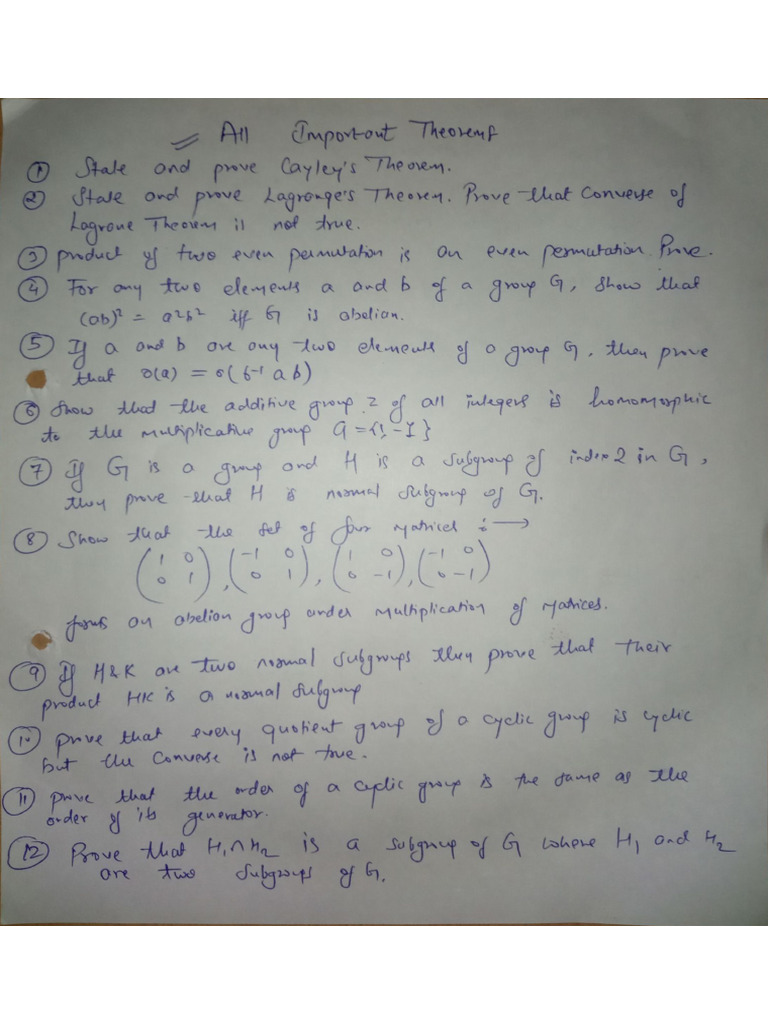 All Important Theorems
① State and prove Cayley's Theorem.
② State and prove Lagrange's Theorem. Prove that Converse of
Lagrane Theorem is not true.
③ product of two even permutation is an even permutation. Prove.
④ For any two elements a and b of a group G, show that
(ab)² = a²b² iff G is abelian.
⑤ If a and b are any two elements of a group G, then prove
that o(a) = o(b⁻¹ab)
⑥ Show that the additive group Z of all integers is homomorphic
to the multiplicative group G = {1, -1}
⑦ If G is a group and H is a subgroup of index 2 in G,
then prove that H is normal subgroup of G.
⑧ Show that the set of four matrices :→
(1 0 , (-1 0 , (1 0 , (-1 0
0 1) 0 1) 0 -1) 0 -1)
forms an abelian group under multiplication of matrices.
⑨ If H & K are two normal subgroups then prove that their
product HK is a normal subgroup
⑩ prove that every quotient group of a cyclic group is cyclic
but the converse is not true.
⑪ prove that the order of a cyclic group is the same as the
order of its generator.
⑫ Prove that H₁∩H₂ is a subgroup of G where H₁ and H₂
are two subgroups of G.